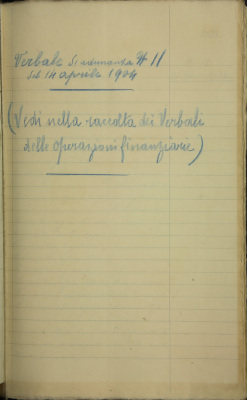 Verbale di adunanza N 11
del 14 aprile 1904
(Vedi nella raccolta dei Verbali
delle operazioni finanziarie)